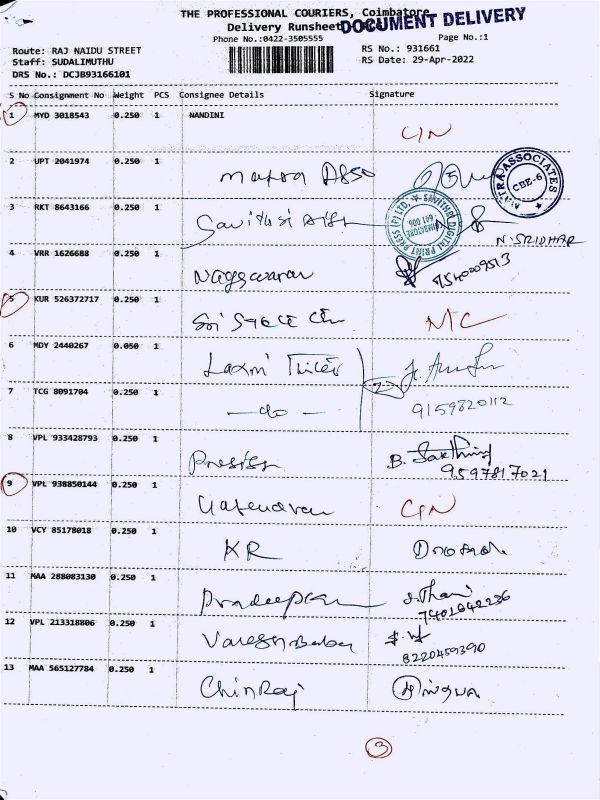 THE PROFESSIONAL COURIERS, Coimbatore
Delivery Runsheet
DOCUMENT DELIVERY
Phone No.:0422-3505555
Page No.:1
Route: RAJ NAIDU STREET
RS No.: 931661
Staff: SUDALIMUTHU
RS Date: 29-Apr-2022
DRS No.: DCJB93166101
S No Consignment No Weight PCS Consignee Details Signature
1 MYD 3018543 0.250 1 NANDINI
2 UPT 2041974 0.250 1
ASSOCIATES
CBE-6
3 RKT 8643166 0.250 1
SAVITHRI DIGITAL PRINT PRESS (P) LTD.
COIMBATORE
641 006
N. SRIDHAR
4 VRR 1626688 0.250 1 Nageswaran
9540009513
5 KUR 526372717 0.250 1
N/C
6 MDY 2440267 0.050 1 Laxmi
2
7 TCG 8091704 0.250 1 — do —
9159820112
8 VPL 933428793 0.250 1
B. Sakthi
9597817021
9 VPL 938850144 0.250 1
10 VCY 85178018 0.250 1 KR
11 MAA 288083130 0.250 1
7401042236
12 VPL 213318806 0.250 1
8220459390
13 MAA 565127784 0.250 1 ChinRaj
3